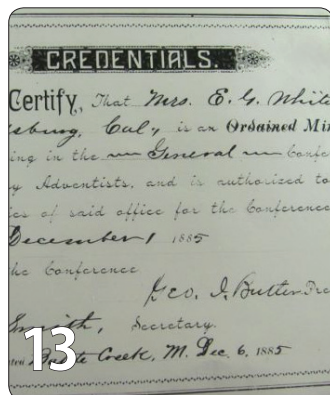 CREDENTIALS.
Certify, That Mrs. E. G. White
sburg, Cal., is an Ordained Min
ing in the General Confe
y Adventists, and is authorized to
ies of said office for the Conference
December 1 1885
he Conference
Geo. I. Butler Pre
Smith, Secretary.
Creek, M. Dec. 6, 1885
13